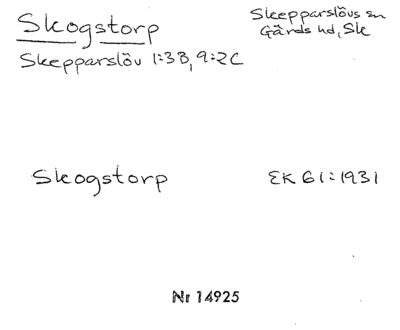 Skogstorp
Skepparslövs sn
Gärds hd, Sk
Skepparslöv 1:38, 9:2C
Skogstorp EK 61:1931
Nr 14925